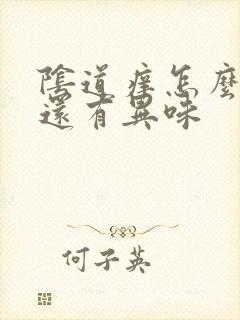 陰道痒怎麼
還有異味
何子英